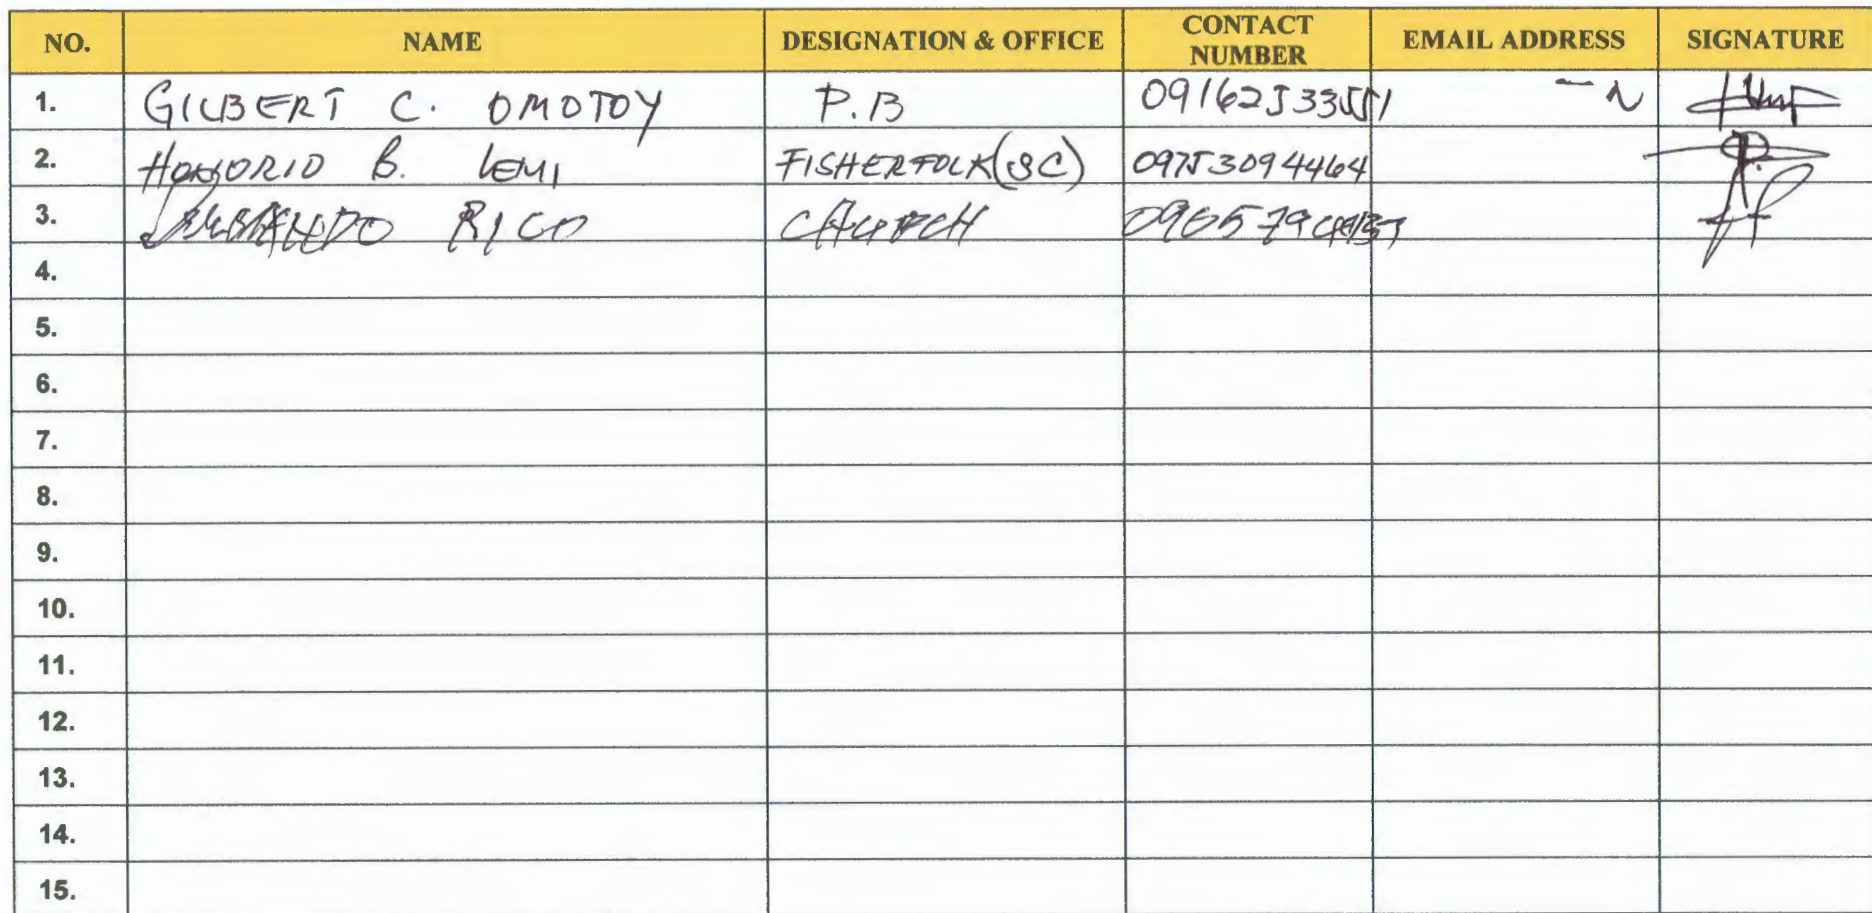 NO. NAME DESIGNATION & OFFICE CONTACT NUMBER EMAIL ADDRESS SIGNATURE
1. GILBERT C. OMOTOY P.B
2. HONORIO B. LEMI FISHERFOLK (SC) 09753094464
3. RICO CHURCH
4.
5.
6.
7.
8.
9.
10.
11.
12.
13.
14.
15.